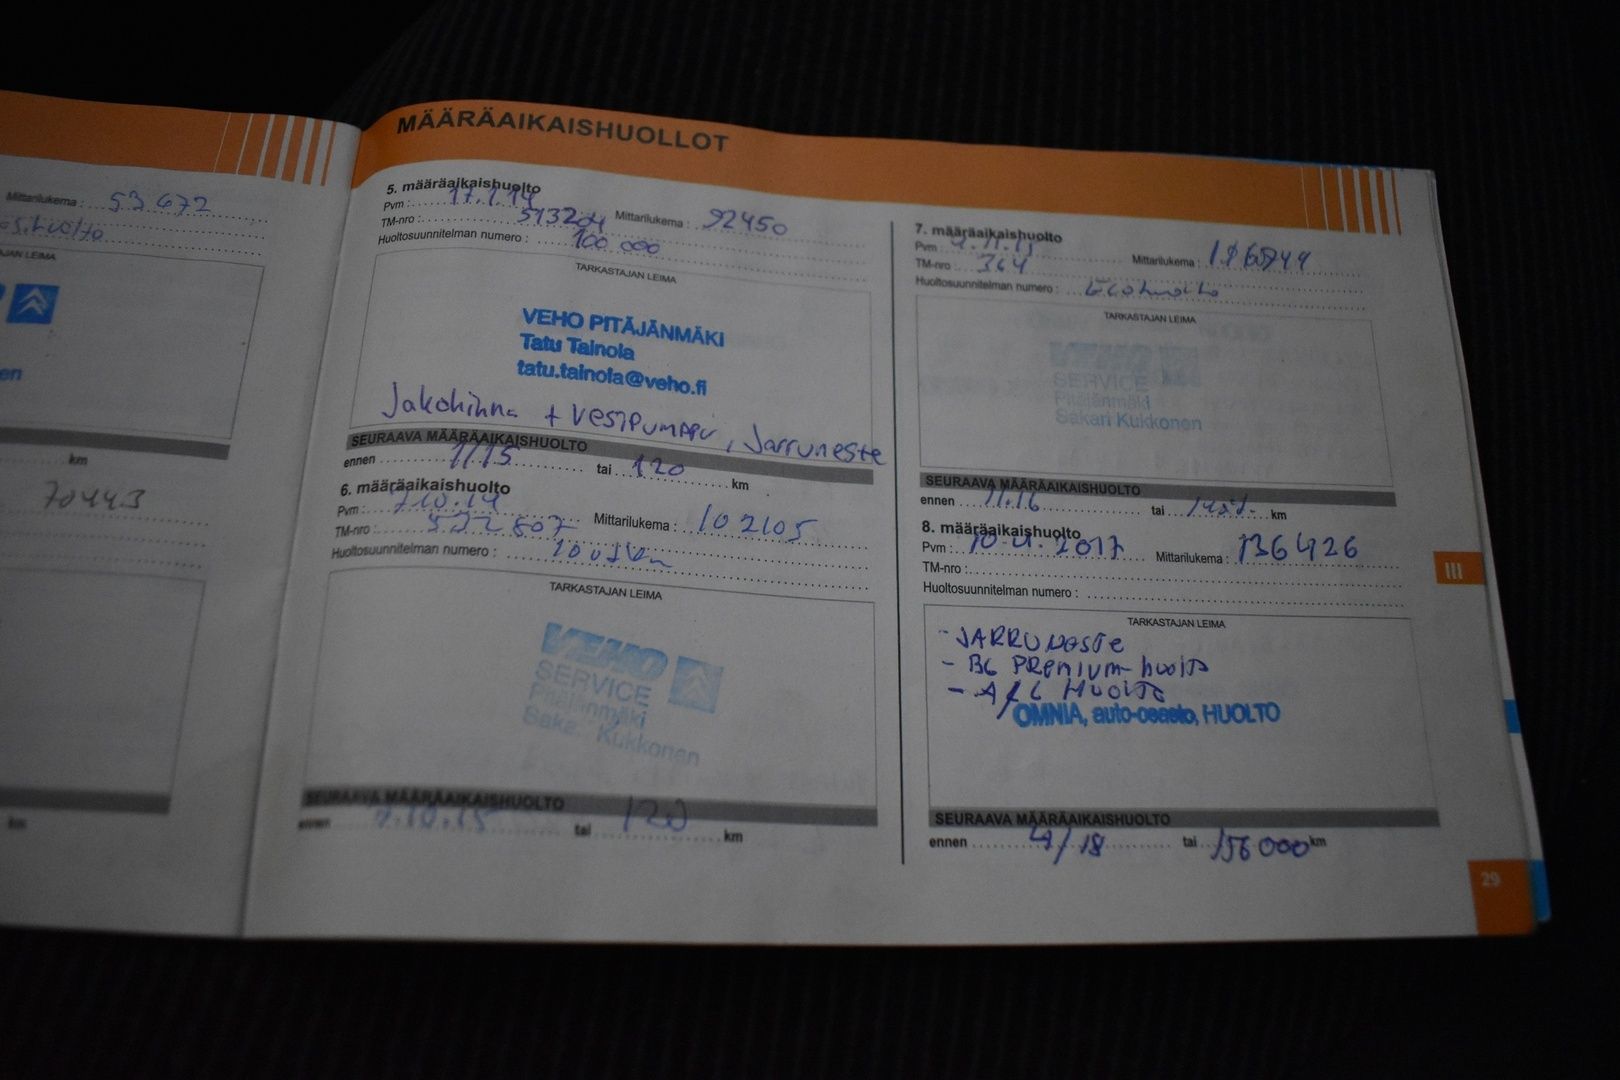 Mittarilukema : 53 672
JAN LEIMA
en
km
70443
km
MÄÄRÄAIKAISHUOLLOT
5. määräaikaishuolto
Pvm : 17.1.14
TM-nro : 513204 Mittarilukema : 92450
Huoltosuunnitelman numero : 100 000
TARKASTAJAN LEIMA
VEHO PITÄJÄNMÄKI
Tatu Tainola
tatu.tainola@veho.fi
Jakohihna + vesipumppu, Jarruneste
SEURAAVA MÄÄRÄAIKAISHUOLTO
ennen 1/15 tai 120 km
6. määräaikaishuolto
Pvm : 7.10.14
TM-nro : 522807 Mittarilukema : 102105
Huoltosuunnitelman numero :
TARKASTAJAN LEIMA
VEHO
SERVICE
Pitäjänmäki
Kukkonen
SEURAAVA MÄÄRÄAIKAISHUOLTO
ennen 7.10.15 tai 120 km
7. määräaikaishuolto
Pvm :
TM-nro : 364 Mittarilukema :
Huoltosuunnitelman numero :
TARKASTAJAN LEIMA
VEHO
SERVICE
Pitäjänmäki
Sakari Kukkonen
SEURAAVA MÄÄRÄAIKAISHUOLTO
ennen 11.16 tai km
8. määräaikaishuolto
Pvm : 10.4.2017 Mittarilukema : 136426
TM-nro :
Huoltosuunnitelman numero :
TARKASTAJAN LEIMA
- JARRUNESTE
- BG PREMIUM-huolto
- A/C HUOLTO
OMNIA, auto-osasto, HUOLTO
SEURAAVA MÄÄRÄAIKAISHUOLTO
ennen 4/18 tai 156000 km
III
29